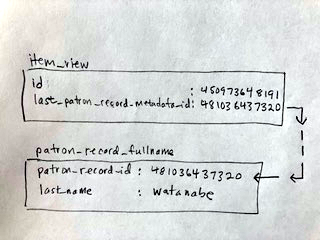 item_view
id : 450973648191
last_patron_record_metadata_id : 481036437320
patron_record_fullname
patron_record_id : 481036437320
last_name : Watanabe